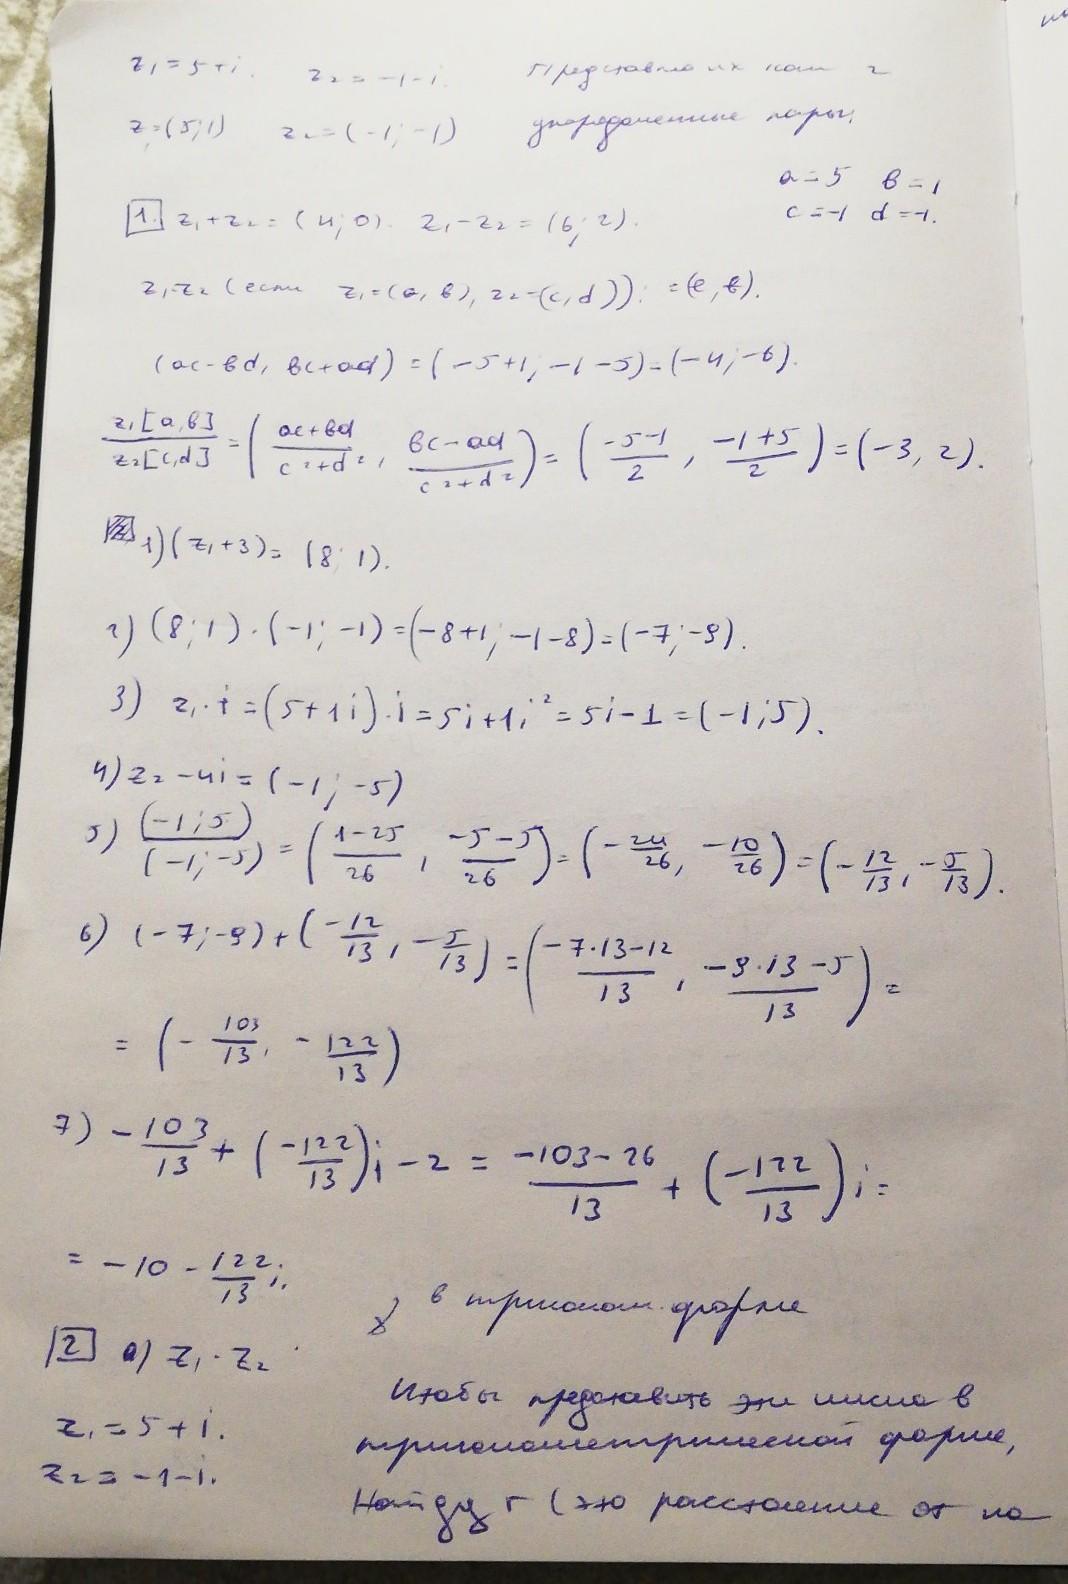 z₁ = 5+i. z₂ = -1-i. Представлю их как 2
z₁=(5;1) z₂=(-1;-1) упорядоченные пары.
a=5 в=1
c=-1 d=-1.
1. z₁+z₂=(4;0). z₁-z₂=(6;2).
z₁·z₂ (если z₁=(a,в), z₂=(c,d)):
(ac-вd, вc+ad) = (-5+1; -1-5)=(-4;-6).
z₁[a,в]/z₂[c,d] = ((ac+вd)/(c²+d²), (вc-ad)/(c²+d²)) = ((-5-1)/2, (-1+5)/2) = (-3, 2).
1) (z₁+3)= (8;1).
2) (8;1)·(-1;-1)=(-8+1; -1-8)=(-7;-9).
3) z₁·i=(5+1i)·i=5i+1i²=5i-1=(-1;5).
4) z₂-4i=(-1;-5)
5) (-1;5)/(-1;-5) = ((1-25)/26, (-5-5)/26) = (-24/26, -10/26) = (-12/13, -5/13).
6) (-7;-9)+(-12/13, -5/13) = ((-7·13-12)/13, (-9·13-5)/13) =
= (-103/13, -122/13)
7) -103/13 + (-122/13)i - 2 = (-103-26)/13 + (-122/13)i =
= -10 - 122/13 i.
в тригоном. форме
2 а) z₁·z₂
Чтобы представить эти числа в
z₁=5+i.
тригонометрической форме,
z₂=-1-i.
Найду r (это расстояние от на